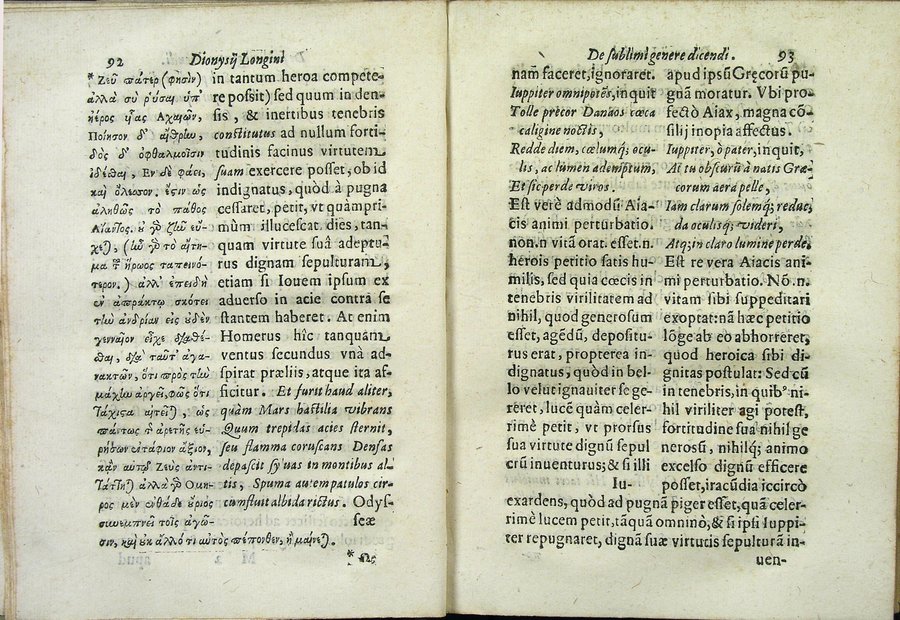 92 Dionysij Longini
*Ζεῦ πάτερ (φησὶν)
ἀλλὰ σὺ ῥῦσαι ὑπ'
ἠέρος υἷας Ἀχαιῶν,
Ποίησον δ' αἴθρην,
δὸς δ' ὀφθαλμοῖσιν
ἰδέσθαι, Ἐν δὲ φάει,
καὶ ὄλεσσον. ἔστιν ὡς
ἀληθῶς τὸ πάθος
Αἴαντος. οὐ γὰρ ζῆν εὔ-
χεται, (ἦν γὰρ τὸ αἴτη-
μα τοῦ ἥρωος ταπεινό-
τερον.) ἀλλ' ἐπειδὴ
ἐν ἀπράκτῳ σκότει
τὴν ἀνδρίαν εἰς οὐδὲν
γενναῖον εἶχε διαθέ-
σθαι, διὰ ταῦτ' ἀγα-
νακτῶν, ὅτι πρὸς τὴν
μάχην ἀργεῖ, φῶς ὅτι
τάχιστα αἰτεῖται, ὡς
πάντως τῆς ἀρετῆς εὑ-
ρήσων ἐντάφιον ἄξιον,
κἂν αὐτῷ Ζεὺς ἀντι-
τάττηται. ἀλλὰ γὰρ Ὅμη-
ρος μὲν ἐνθάδε οὔριος
συνεμπνεῖ τοῖς ἀγῶ-
σιν, καὶ οὐκ ἄλλο τι αὐτὸς πέπονθεν, ἢ μαίνεται.
in tantum heroa compete-
re possit) sed quum in den-
sis, & inertibus tenebris
constitutus ad nullum forti-
tudinis facinus virtutem
suam exercere posset, ob id
indignatus, quòd à pugna
cessaret, petit, vt quàmpri-
mùm illucescat dies, tan-
quam virtute suâ adeptu-
rus dignam sepulturam,
etiam si Iouem ipsum ex
aduerso in acie contrà se
stantem haberet. At enim
Homerus hîc tanquam
ventus secundus vnà ad-
spirat præliis, atque ita af-
ficitur. Et furit haud aliter,
quàm Mars hastilia vibrans
Quum trepidas acies sternit,
seu flamma coruscans Densas
depascit syluas in montibus al-
tis, Spuma autem patulos cir-
cumfluit albida rictus. Odys-
seæ
*Ὡς
De sublimi genere dicendi. 93
nam faceret, ignoraret.
Iuppiter omnipotēs, inquit
Tolle precor Danaos cæca
caligine noctis,
Redde diem, cœlumq; ocu-
lis, ac lumen ademptum,
Et sic perde viros.
Est verè admodū Aia-
cis animi perturbatio.
non.n vitā orat. esset.n.
herois petitio satis hu-
milis, sed quia cœcis in
tenebris virilitatem ad
nihil, quod generosum
esset, agēdū, depositu-
rus erat, propterea in-
dignatus, quòd in bel-
lo velut ignauiter se ge-
reret, lucē quàm celer-
rimè petit, vt prorsus
sua virtute dignū sepul
crū inuenturus; & si illi
Iu-
apud ipsū Gręcorū pu-
gnā moratur. Vbi pro-
fectò Aiax, magna cō-
silij inopia affectus.
Iuppiter, ò pater, inquit,
At tu obscurū à natis Græ-
corum aera pelle,
Iam clarum solemq; reduc,
da oculisq; videri,
Atq; in claro lumine perde.
Est re vera Aiacis ani-
mi perturbatio. Nō.n.
vitam sibi suppeditari
exoptat: nā hæc petitio
lōgè ab eo abhorreret,
quod heroica sibi di-
gnitas postulat: Sed cū
in tenebris, in quibꝰ ni-
hil viriliter agi potest,
fortitudine sua nihil ge
nerosū, nihilq; animo
excelso dignū efficere
posset, iracūdia iccircò
exardens, quòd ad pugnā piger esset, quā celer-
rimè lucem petit, tāquā omninò, & si ipsi Iuppi-
ter repugnaret, dignā suæ virtutis sepulturā in-
uen-